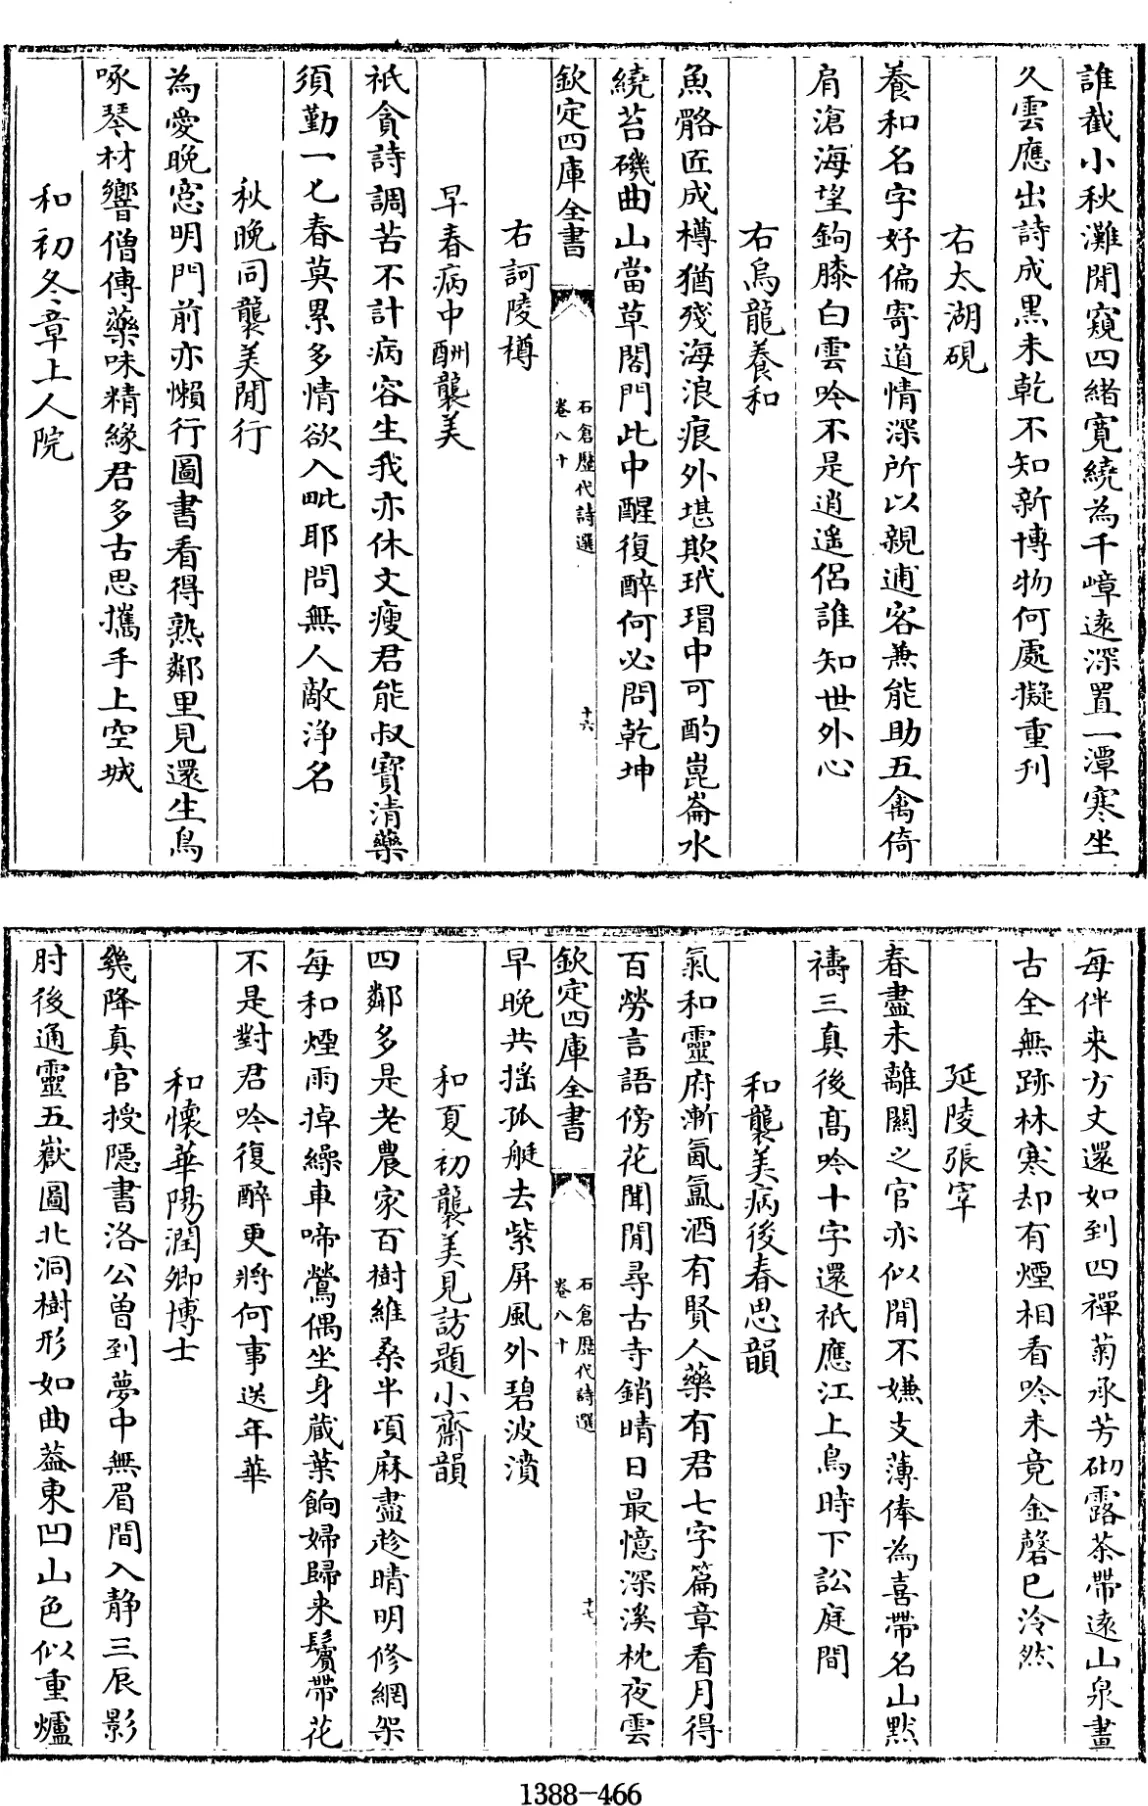 誰截小秋灘閒窺四緒寛繞為千嶂逺深置一潭寒坐
久雲應出詩成黒未乾不知新博物何處擬重刋
右太湖硯
養和名字好偏寄道情深所以親逋客兼能助五禽倚
肩滄海望鉤膝白雲吟不是逍遥侣誰知世外心
右烏龍養和
魚骼匠成樽猶殘海浪痕外堪欺玳瑁中可酌崑崙水
繞苔磯曲山當草閣門此中醒復醉何必問乾坤
欽定四庫全書
石倉歴代詩選
卷八十
十六
右訶陵樽
早春病中酬襲美
祇貪詩調苦不計病容生我亦休文瘦君能叔寳清藥
須勤一匕春莫累多情欲入毗耶問無人敵浄名
秋晩同襲美閒行
為愛晩窓明門前亦懶行圖書看得熟鄰里見還生鳥
啄琴材響僧傳藥味精緣君多古思攜手上空城
和初冬章上人院
每伴来方丈還如到四禪菊承芳砌露茶帶逺山泉畫
古全無跡林寒却有煙相看吟未竟金磬已泠然
延陵張宰
春盡未離闗之官亦似閒不嫌支薄俸為喜帶名山黙
禱三真後髙吟十字還祇應江上鳥時下訟庭間
和襲美病後春思韻
氣和靈府漸氤氲酒有賢人藥有君七字篇章看月得
百勞言語傍花聞閒尋古寺銷晴日最憶深溪枕夜雲
欽定四庫全書
石倉歴代詩選
卷八十
十七
早晩共揺孤艇去紫屏風外碧波濆
和夏初襲美見訪題小齋韻
四鄰多是老農家百樹維桑半頃麻盡趁晴明修網架
每和煙雨掉繰車啼鶯偶坐身蔵葉餉婦歸来鬢帶花
不是對君吟復醉更將何事送年華
和懷華陽潤卿博士
幾降真官授隠書洛公曽到夢中無眉間入静三辰影
肘後通靈五嶽圖北洞樹形如曲葢東凹山色似重爐
1388-466